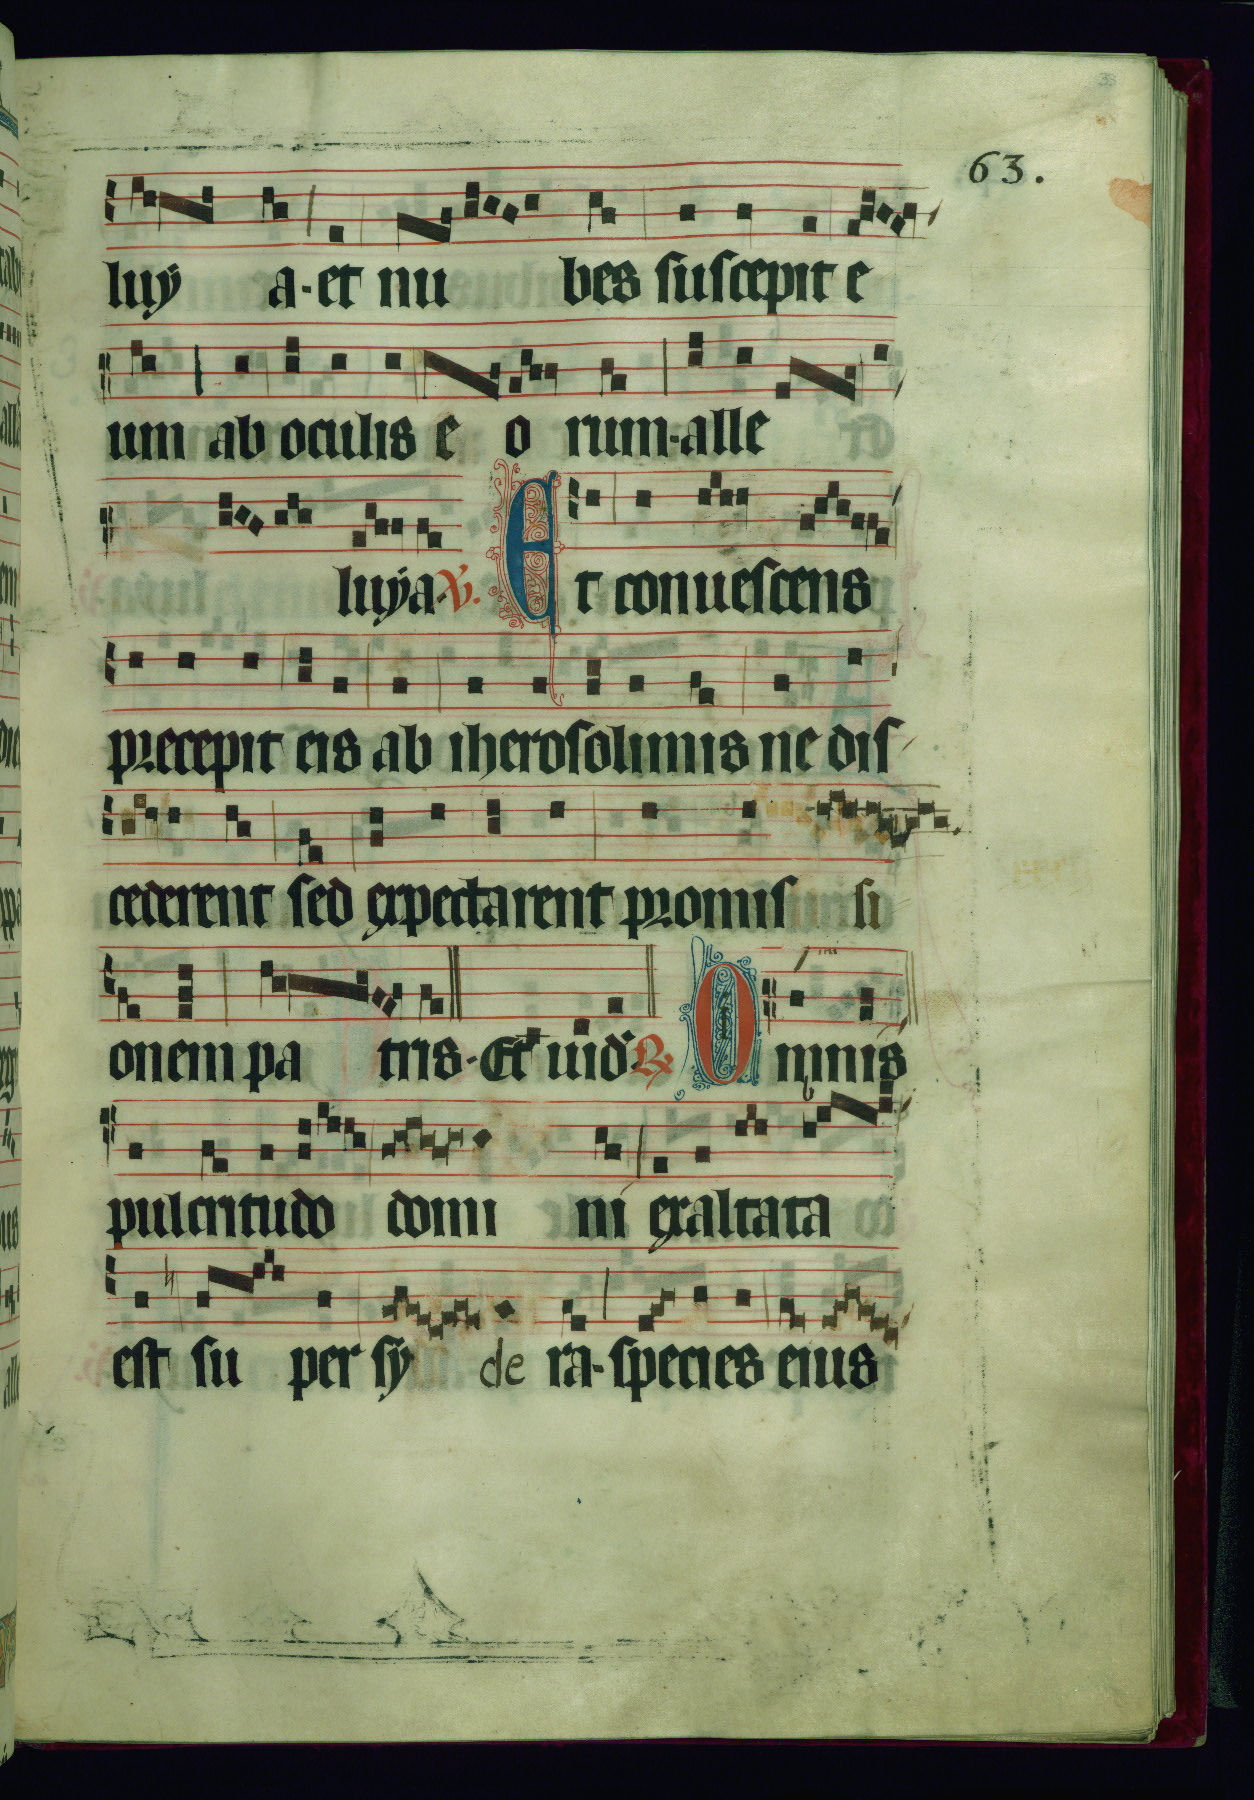 63.
luÿ a·et nu bes suscepit e
um ab oculis e o rum·alle
luÿa·℣. Et conuescens
precepit eis ab iherosolimis ne dis
cederent sed expectarent promis si
onem pa tris·Et uid' ℟ Omnis
pulcritudo domi ni exaltata
est su per sÿ de ra·species eius